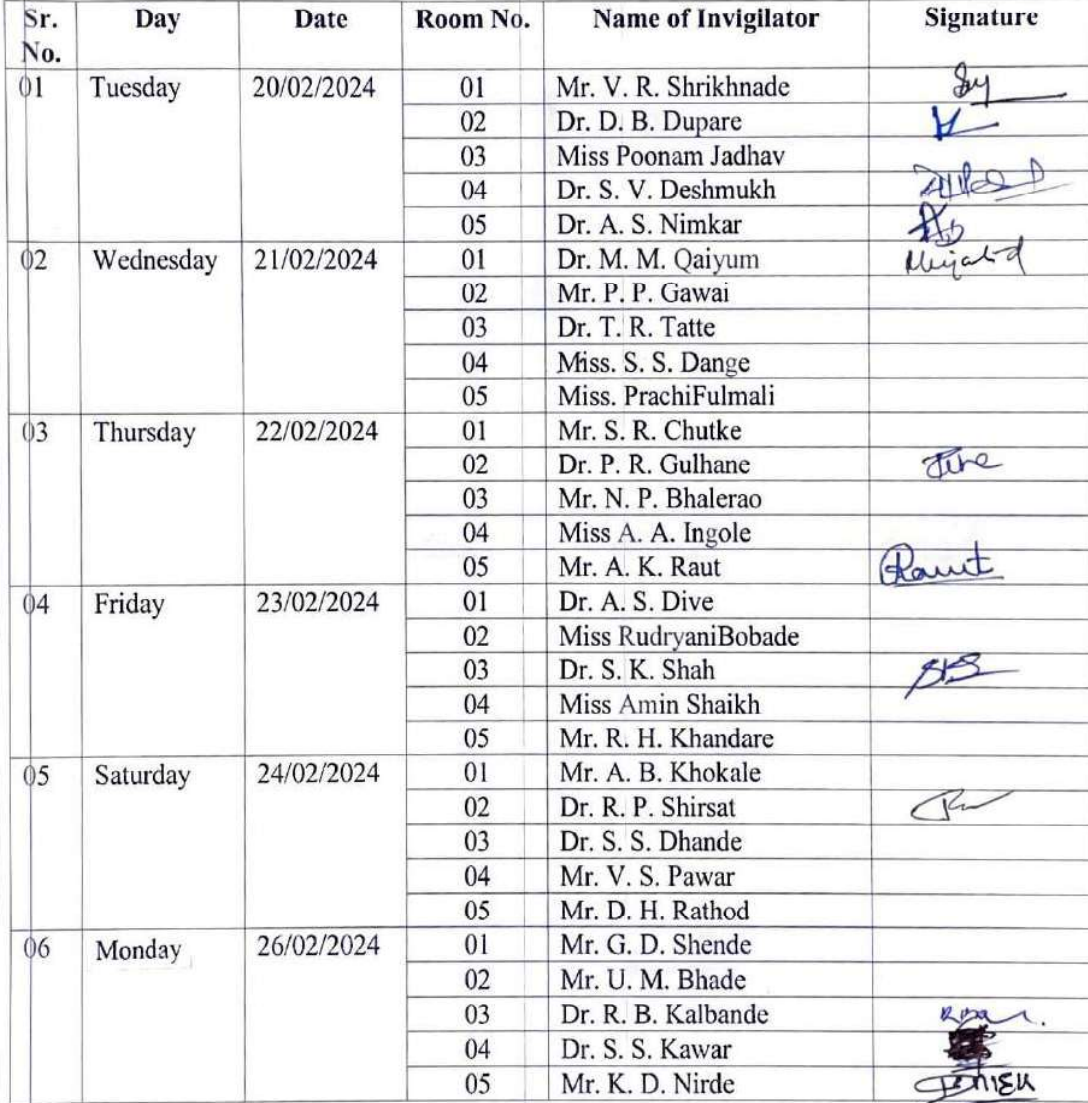 Sr. No. Day Date Room No. Name of Invigilator Signature
01 Tuesday 20/02/2024 01 Mr. V. R. Shrikhnade
02 Dr. D. B. Dupare
03 Miss Poonam Jadhav
04 Dr. S. V. Deshmukh
05 Dr. A. S. Nimkar
02 Wednesday 21/02/2024 01 Dr. M. M. Qaiyum
02 Mr. P. P. Gawai
03 Dr. T. R. Tatte
04 Miss. S. S. Dange
05 Miss. PrachiFulmali
03 Thursday 22/02/2024 01 Mr. S. R. Chutke
02 Dr. P. R. Gulhane
03 Mr. N. P. Bhalerao
04 Miss A. A. Ingole
05 Mr. A. K. Raut Raut
04 Friday 23/02/2024 01 Dr. A. S. Dive
02 Miss RudryaniBobade
03 Dr. S. K. Shah SKS
04 Miss Amin Shaikh
05 Mr. R. H. Khandare
05 Saturday 24/02/2024 01 Mr. A. B. Khokale
02 Dr. R. P. Shirsat
03 Dr. S. S. Dhande
04 Mr. V. S. Pawar
05 Mr. D. H. Rathod
06 Monday 26/02/2024 01 Mr. G. D. Shende
02 Mr. U. M. Bhade
03 Dr. R. B. Kalbande
04 Dr. S. S. Kawar
05 Mr. K. D. Nirde